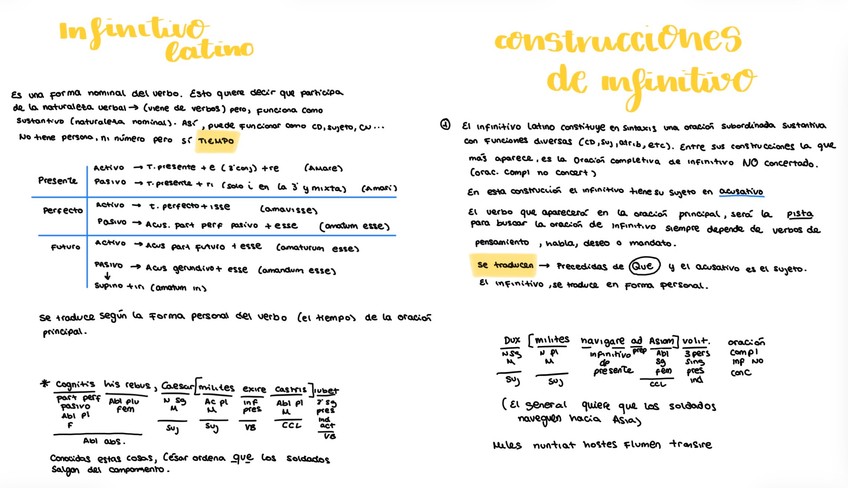 Infinitivo
latino
Es una forma nominal del verbo. Esto quiere decir que participa
de la naturaleza verbal → (viene de verbos) pero, funciona como
sustantivo (naturaleza nominal). Así, puede funcionar como CD, sujeto, CN...
No tiene persona, ni número pero sí TIEMPO
Presente
Activo → T. presente + e (3ª conj) + re (Amare)
Pasivo → T. presente + ri (solo i en la 3ª y mixta) (Amari)
Perfecto
Activo → t. perfecto + isse (amavisse)
Pasivo → Acus. part perf pasivo + esse (amatum esse)
Futuro
Activo → Acus part futuro + esse (amaturum esse)
PASIVO → Acus gerundivo + esse (amandum esse)
↓
Supino + iri (amatum iri)
Se traduce según la forma personal del verbo (el tiempo) de la oración
principal.
* Cognitis his rebus, Caesar [milites exire castris] iubet
part perf Abl plu N Sg Ac pl inf Abl pl 3ª sg
pasivo fem M M pres M pres
Abl pl ind
F Suj Suj VB CCL act
Abl abs. VB
Conocidas estas cosas, César ordena que los soldados
salgan del campamento.
construcciones
de infinitivo
① El infinitivo latino constituye en sintaxis una oración subordinada sustantiva
con funciones diversas (CD, suj, atrib, etc). Entre sus construcciones la que
más aparece, es la oración completiva de infinitivo NO concertado.
(orac. compl no concert)
En esta construcción el infinitivo tiene su sujeto en acusativo
El verbo que aparecerá en la oración principal, será la pista
para buscar la oración de infinitivo siempre depende de verbos de
pensamiento, habla, deseo o mandato.
Se traducen → Precedidas de Que y el acusativo es el sujeto.
El infinitivo, se traduce en forma personal.
Dux [milites navigare ad Asiam] volit. oración
N Sg N pl infinitivo prep Abl 3 pers compl
M M de Sg sing inf no
presente fem pres conc
Suj Suj CCL ind
(El general quiere que los soldados
naveguen hacia Asia)
Miles nuntiat hostes flumen transire